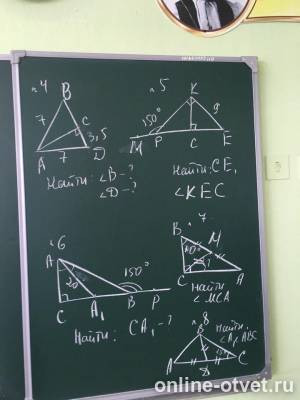 №4
B
7
C
3,5
A
7
D
Найти: ∠B-?
∠D-?
№5
K
150°
9
M P C E
Найти: CE,
∠KEC
№6
A
20°
150°
C A₁ B P
Найти: CA₁-?
7
B
M
C
A
Найти
∠MCA
8
B
Найти:
∠A, ∠ABC
A
C
online-otvet.ru